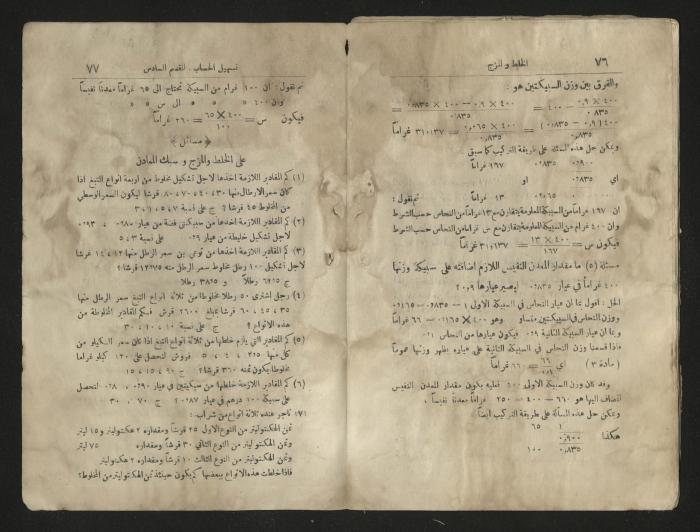 ٧٦
الخلط والمزج
والفرق بين وزن السبيكتين هو :
٤٠٠ × ٠,٩ / ٠,٨٣٥ — ٤٠٠ = ٤٠٠ × ٠,٩ — ٤٠٠ × ٠,٨٣٥ / ٠,٨٣٥ =
٤٠٠ (٠,٩ — ٠,٨٣٥) / ٠,٨٣٥ = ٤٠٠ × ٠,٠٦٥ / ٠,٨٣٥ = ٣١,١٣٧ غراماً
ويمكن حل هذه المسئلة على طريقة التركيب كما سبق
٠,٩٠٠ ١٦٧ غراماً
اي ٠,٨٣٥ او
٠,٠٦٥ ١٣ غراماً ثم نقول :
ان ١٦٧ غراماً من السبيكة المعلومة يتقارن مع ١٣ غراماً من النحاس حسب الشرط
وان ٤٠٠ غرام من السبيكة المعلومة يتقارن مع س غراماً من النحاس حسب الشرط
فيكون س = ٤٠٠ × ١٣ / ١٦٧ = ٣١,١٣٧ غراماً
مسئلة (٥) ما مقدار المعدن النفيس اللازم اضافته على سبيكة وزنها
٤٠٠ غراماً في عيار ٠,٨٣٥ ليصير عيارها ٠,٩
الحل : اقول بما ان عيار النحاس في السبيكة الاولى ١ — ٠,٨٣٥ = ٠,١٦٥
ووزن النحاس في السبيكتين متساو وهو ٤٠٠ × ٠,١٦٥ = ٦٦ غراماً
وبما ان عيار السبيكة الثانية ٠,٩ فيكون عيارها من النحاس ٠,١
فاذا قسمنا وزن النحاس في السبيكة الثانية على عياره يظهر وزنها عموماً
(مادة ٣) اي ٦٦ / ٠,١ = ٦٦٠ غراماً
وقد كان وزن السبيكة الاولى ٤٠٠ فعليه يكون مقدار المعدن النفيس
المضاف اليها هو ٦٦٠ — ٤٠٠ = ٢٦٠ غراماً معدناً نفيساً
ويمكن حل هذه المسألة على طريقة التركيب ايضاً
١ ٦٥
هكذا ٠,٩٠٠
٠,٨٣٥ ١٠٠
تسهيل الحساب . القسم السادس
٧٧
ثم نقول : ان ١٠٠ غرام من السبيكة تحتاج الى ٦٥ غراماً معدناً نفيساً
وان ٤٠٠ » » » الى س » »
فيكون س = ٤٠٠ × ٦٥ / ١٠٠ = ٢٦٠ غراماً
﴿ مسائل ﴾
على الخلط والمزج و سبك المعادن
(١) كم المقادير اللازمة اخذها لاجل تشكيل مخلوط من اربعة انواع التبغ اذا
كان سعر الارطال منها ٣٠ ، ٤٠ ، ٧٠ ، ٨٠ قرشاً ليكون السعر الوسطي
من المخلوط ٤٥ قرشاً ؟ ج على نسبة
(٢) كم المقادير اللازمة اخذها من سبيكتي فضة من عيار
لاجل تشكيل خليطة من عيار ٠,٩ على نسبة ٣ ، ٥
(٣) كم المقادير اللازمة اخذها من نوعي بن سعر الرطل منها ١٢ ، ١٤ غرشاً
لاجل تشكيل ١٠٠ رطل مخلوط سعر الرطل منه ١٢,٧٧٥ قرشاً ؟
ج ٦١,٢٥ رطلاً و ٣٨,٧٥ رطلا
(٤) رجل اشترى ٥٠ رطلا مخلوطاً من ثلاثة انواع التبغ سعر الرطل منها
٣٥ ، ٤٥ ، ٦٠ قرشاً بمبلغ ٢٦٠٠ قرش فكم المقادير المخلوطة من
هذه الانواع ؟ ج على نسبة ١٠ ، ١٠ ، ٣٠
(٥) كم المقادير التي يلزم خلطها من ثلاثة انواع التبغ اذا كان سعر الكيلو من
كل منها ٢,٥ ، ٤ ، ٥ قروش لتحصل على ١٢٠ كيلو غراما
مخلوطا يكون ثمنه ٣٦٠ قرشاً ؟ ج ٩٠ ، ١٥ ، ١٥
(٦) كم المقادير اللازمة خلطها من سبيكتين في عيار ٠,٩٠ ، ٠,٨٠ لتحصل
على سبيكة ١٠٠ درهم في عيار ٠,٨٧ ؟ ج ٧٠ ، ٣٠
(٧) تاجر عنده ثلاثة انواع من شراب :
ثمن الهكتوليتر من النوع الاول ٢٥ قرشاً ومقداره ٢ هكتوليتر و ١٥ ليتر
وثمن الهكتوليتر من النوع الثاني ٣٠ قرشاً ومقداره ٧٥ ليتر
وثمن الهكتوليتر من النوع الثالث ١٠ قرشاً ومقداره ٢ هكتوليتر
فاذا خلطت هذه الانواع ببعضها كم يكون حينئذ ثمن الهكتوليتر من المخلوط ؟